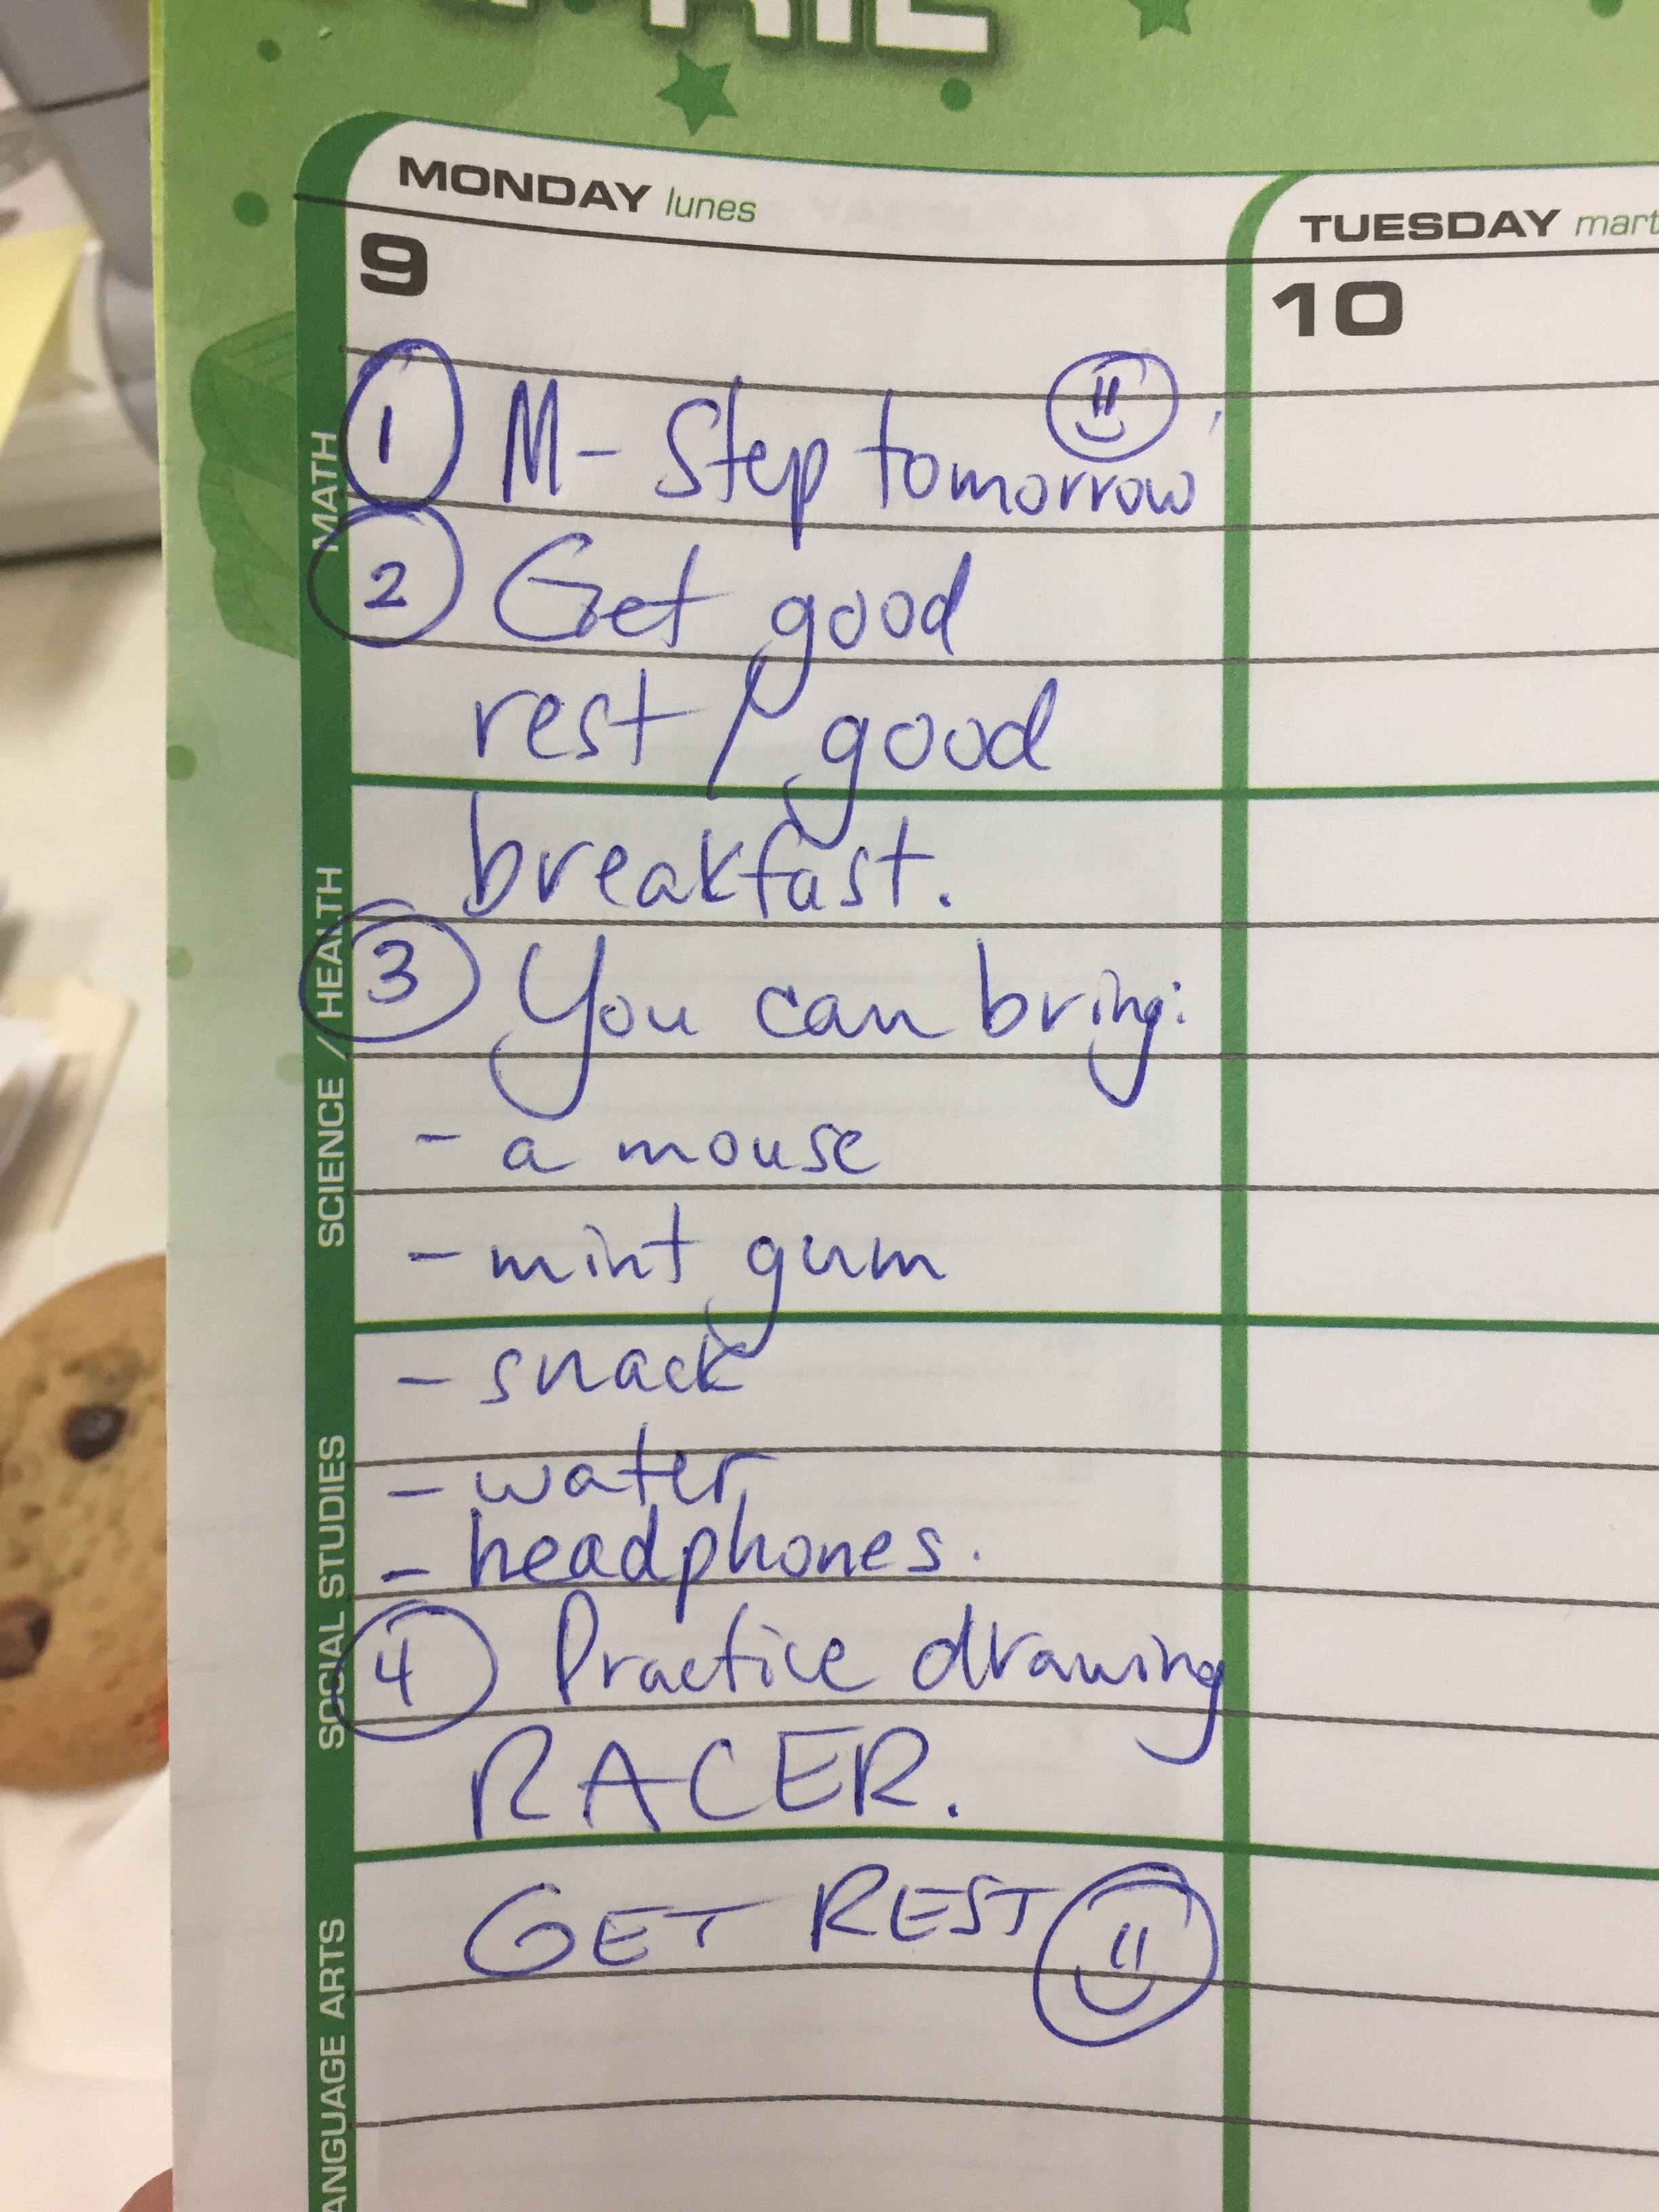 MONDAY lunes
TUESDAY mart
9
10
MATH
① M-Step tomorrow
② Get good
rest / good
SCIENCE / HEALTH
breakfast.
③ You can bring:
- a mouse
- mint gum
SOCIAL STUDIES
- snack
- water
- headphones.
④ Practice drawing
RACER.
ANGUAGE ARTS
GET REST